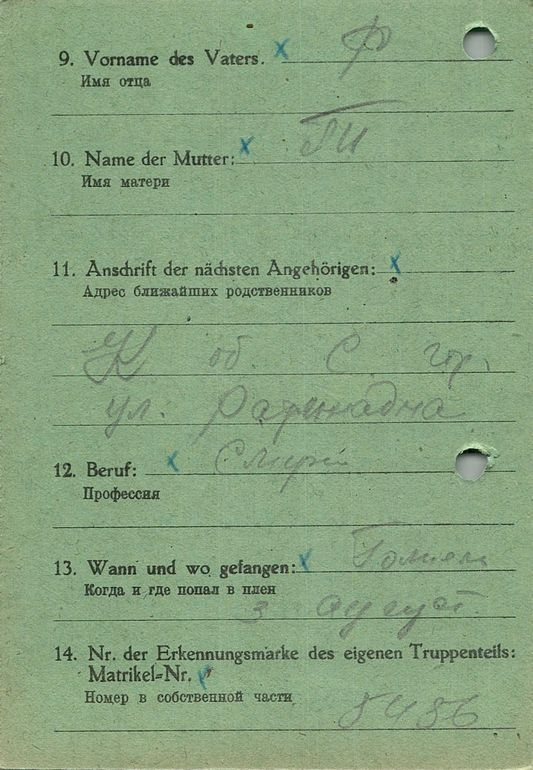 9. Vorname des Vaters. x Ф
Имя отца
10. Name der Mutter: x ГИ
Имя матери
11. Anschrift der nächsten Angehörigen: x
Адрес ближайших родственников
К об. С гор.
ул. Рафинадна
12. Beruf: x
Профессия
13. Wann und wo gefangen: x Гомель
Когда и где попал в плен
3 август.
14. Nr. der Erkennungsmarke des eigenen Truppenteils:
Matrikel-Nr.
Номер в собственной части
8486